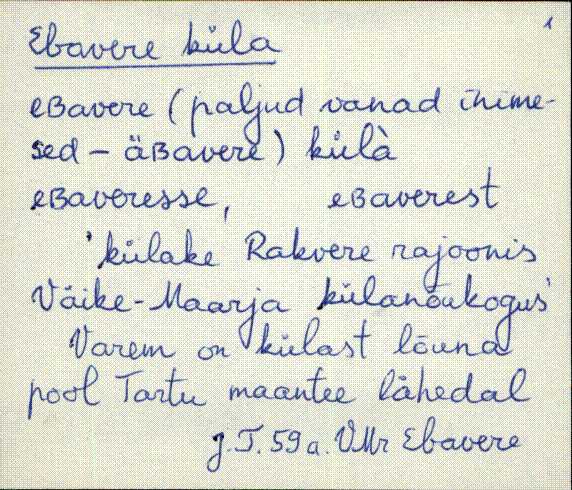 1
Ebavere küla
eʙavere (paljud vanad inime-
sed - äʙavere) külà
eʙaveresse, eʙaverest
'külake Rakvere rajoonis
Väike-Maarja külanõukogus'
Varem on külast lõuna
pool Tartu maantee lähedal
J.T. 59 a. VMr Ebavere